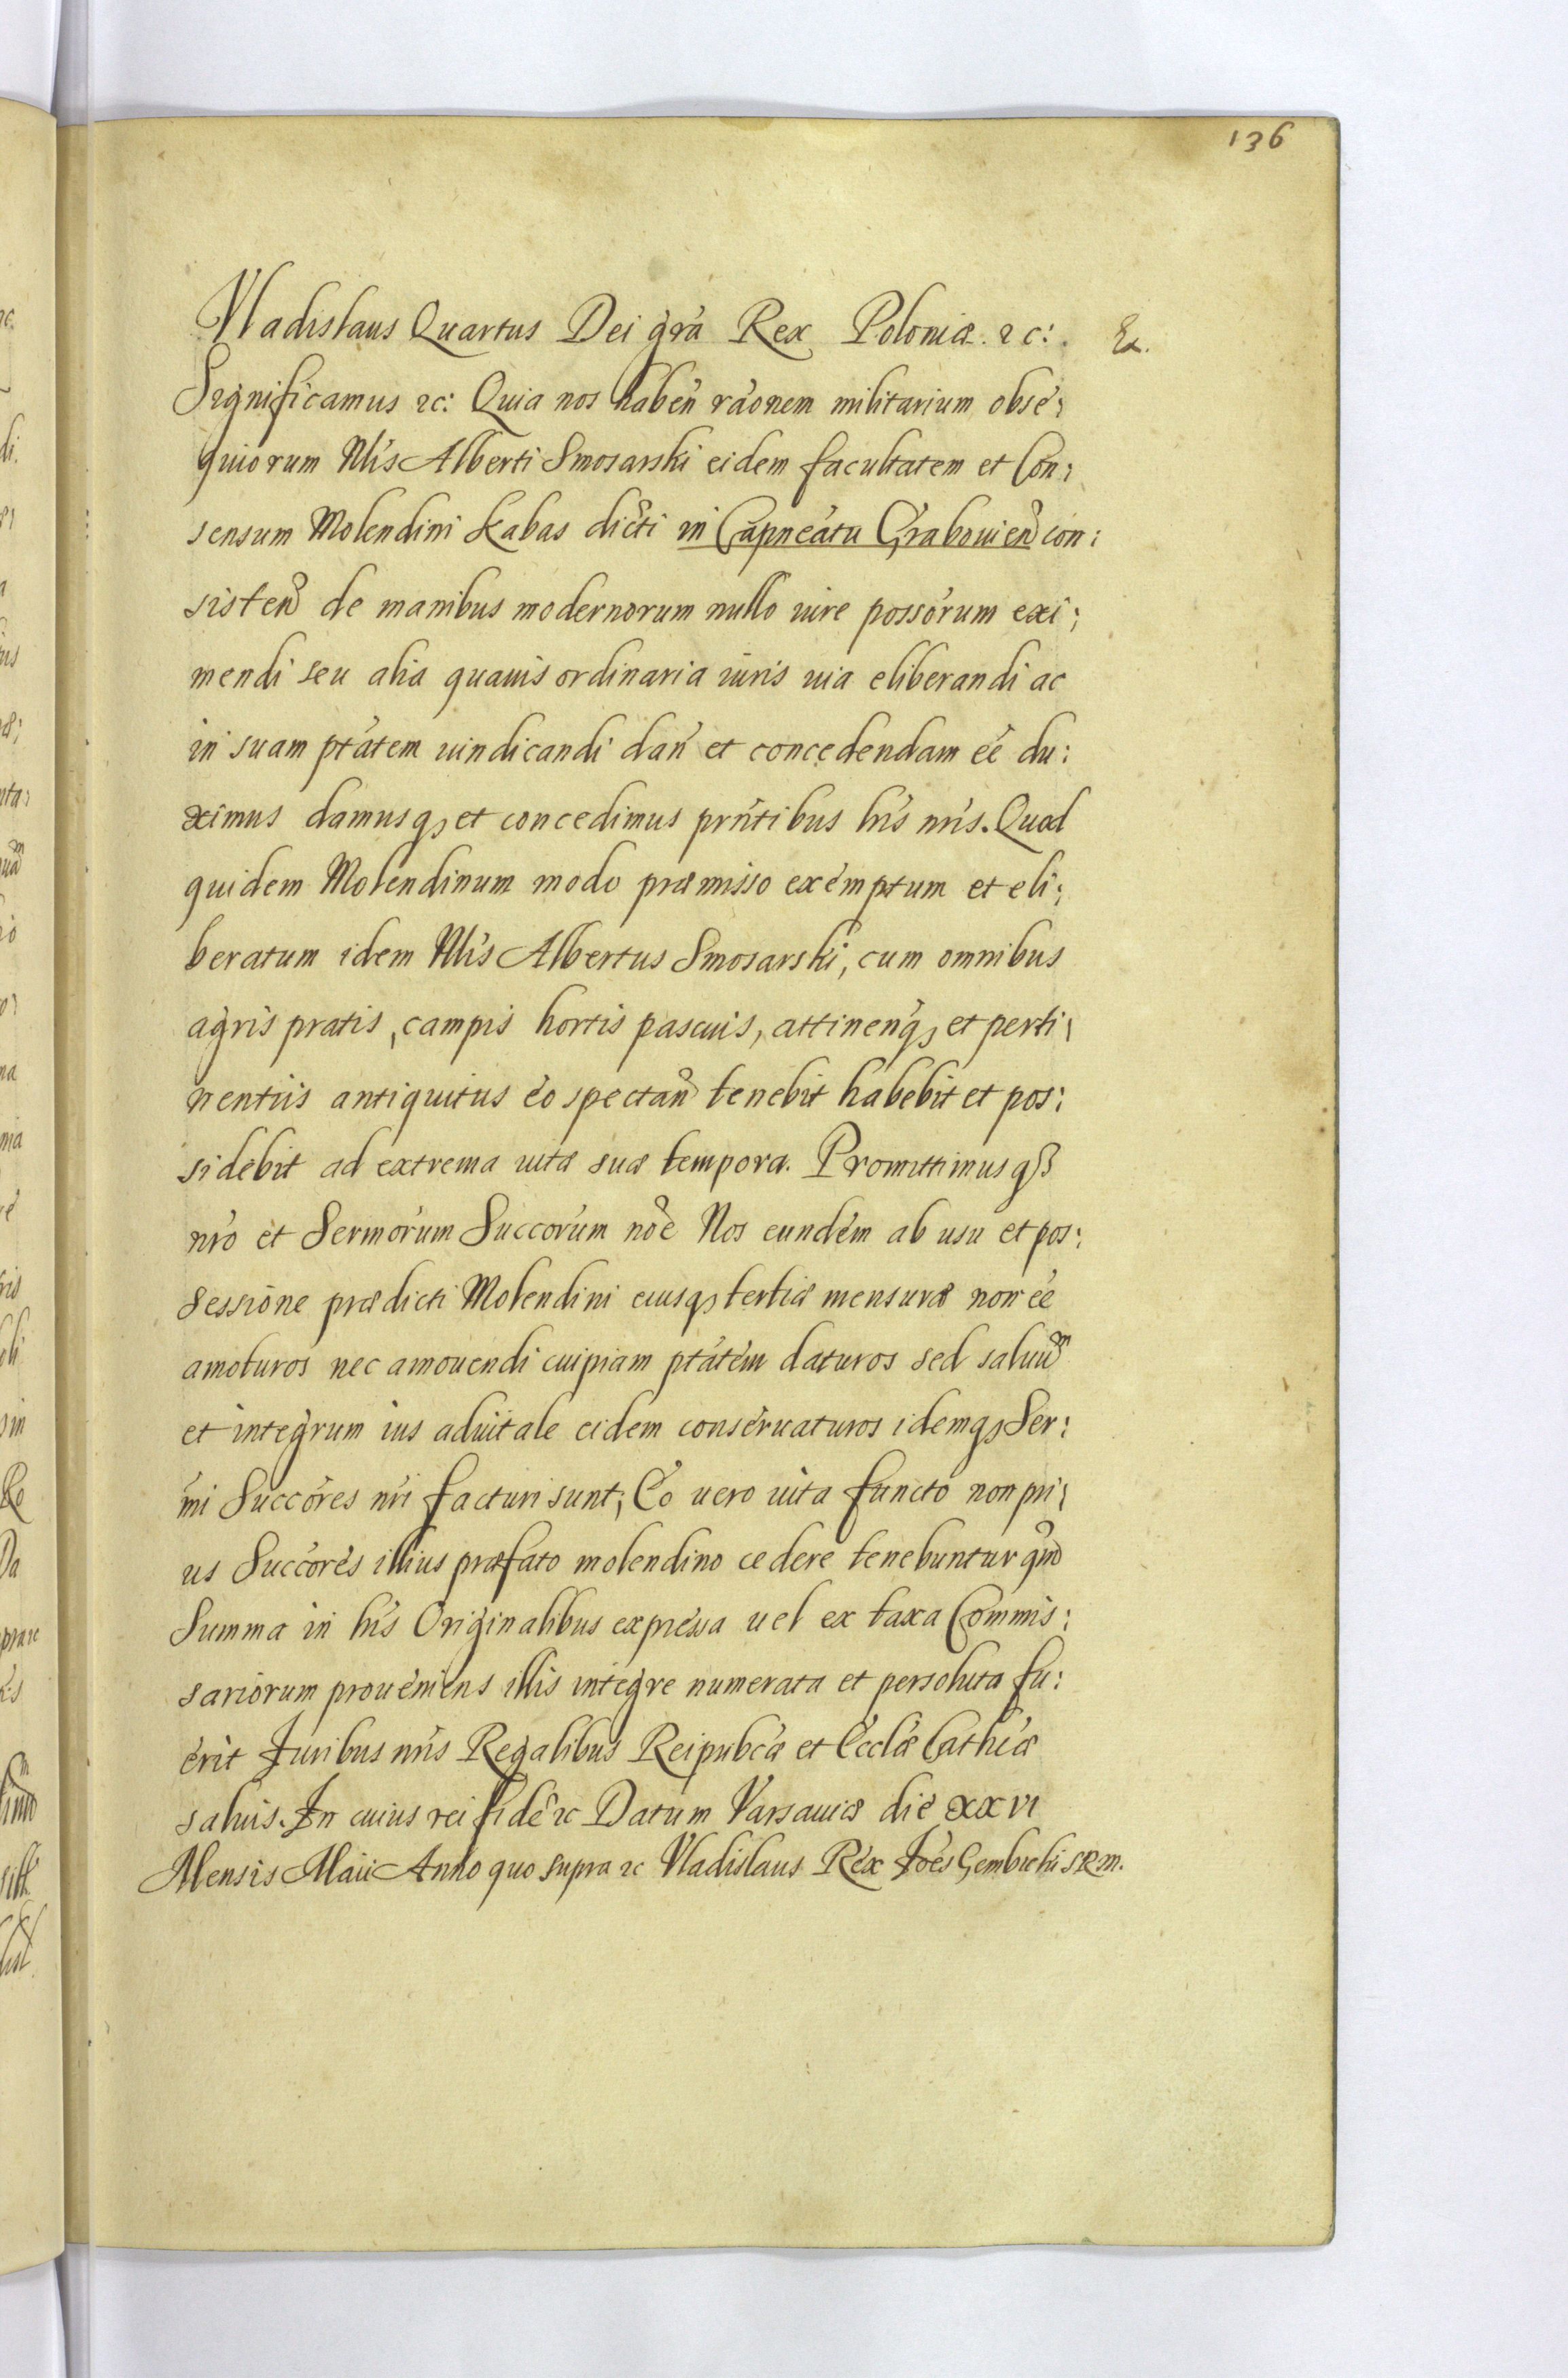 136
Vladislaus Quartus Dei gra Rex Poloniæ. &c: Ex.
Significamus &c: Quia nos haben raonem militarium obse:
quiorum Nlis Alberti Smosarski eidem facultatem et Con:
sensum Molendini Kabas dicti in Capneatu Grabouien con:
sisten de manibus modernorum nullo iure possorum exi:
mendi seu alia quauis ordinaria iuris uia eliberandi ac
in suam ptatem uindicandi dan et concedendam ee du:
ximus damusq3 et concedimus prntibus lris nris. Quod
quidem Molendinum modo præmisso exemptum et eli:
beratum idem Nlis Albertus Smosarski, cum omnibus
agris pratis, campis hortis pascuis, attinenq3 et perti:
nentiis antiquitus eo spectan tenebit habebit et pos:
sidebit ad extrema uitæ suæ tempora. Promittimusq3
nro et Sermorum Succorum noe Nos eundem ab usu et pos:
sessione prædicti Molendini eiusq3 tertiæ mensuræ non ee
amoturos nec amouendi cuipiam ptatem daturos sed saluum
et integrum ius aduitale eidem conseruaturos idemq3 Ser:
mi Succores nri facturi sunt; Eo uero uita functo non pri:
us Succores illius præfato molendino cedere tenebuntur qno
Summa in lris Originalibus expressa uel ex taxa Commis:
sariorum proueniens illis integre numerata et persoluta fu:
erit Juribus nris Regalibus Reipubcæ et Eccliæ Cathcæ
saluis. In cuius rei fide &c Datum Varsauiæ die XXVI
Mensis Maii Anno quo supra &c Vladislaus Rex Joes Gembicki SRM.